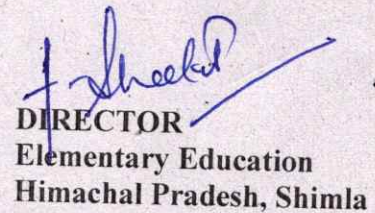 DIRECTOR
Elementary Education
Himachal Pradesh, Shimla